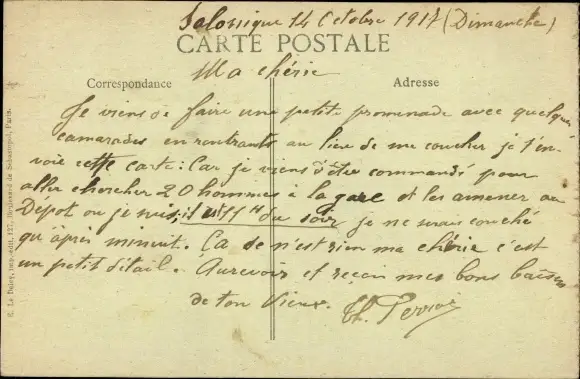 Salonique 14 Octobre 1917 (Dimanche)
CARTE POSTALE
Ma chérie
Correspondance
Adresse
Je viens de faire une petite promenade avec quelques
camarades en rentrants au lieu de me coucher je t'en-
voie cette carte: Car je viens d'être commandé pour
aller chercher 20 hommes à la gare et les amener au
Dépot ou je suis, il est 11H du soir je ne serais couché
qu'àprès minuit. Ça se n'est rien ma chérie c'est
un petit détail. Aurevoir et reçois mes bons baisers
de ton Vieux.
E. Le Deley, imp.-édit., 127, Boulevard de Sébastopol, Paris.